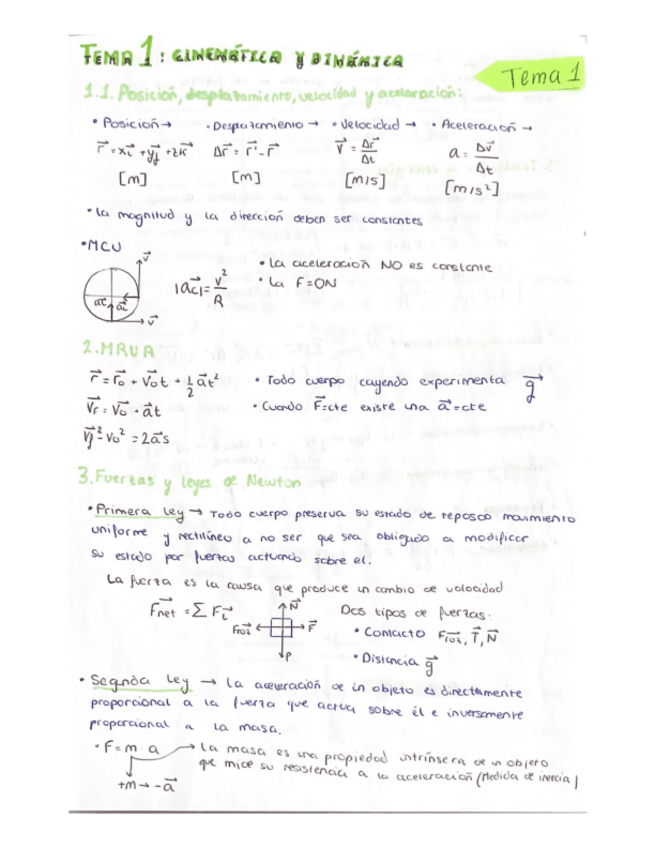 TEMA 1: CINEMÁTICA Y DINÁMICA
Tema 1
1.1. Posición, desplazamiento, velocidad y aceleración:
• Posición → • Desplazamiento → • Velocidad → • Aceleración →
r⃗ = xi⃗ + yj⃗ + zk⃗ Δr⃗ = r⃗ - r⃗ v⃗ = Δr⃗/Δt a = Δv⃗/Δt
[m] [m] [m/s] [m/s²]
• La magnitud y la dirección deben ser constantes
• MCU
v⃗
• La aceleración NO es constante
|ac⃗| = v²/R
• La F = 0N
ac⃗ ac⃗
v⃗
2. MRUA
r⃗ = r⃗o + v⃗o t + 1/2 a⃗t²
• Todo cuerpo cayendo experimenta g⃗
• Cuando F⃗=cte existe una a⃗=cte
v⃗f² - vo² = 2a⃗s
3. Fuerzas y leyes de Newton
• Primera Ley → Todo cuerpo preserva su estado de reposo o movimiento
uniforme y rectilíneo a no ser que sea obligado a modificar
su estado por fuerzas actuando sobre el.
La fuerza es la causa que produce un cambio de velocidad
F⃗net = Σ F⃗i
N⃗
Froz F⃗
P
Dos tipos de fuerzas:
• Contacto F⃗roz, T⃗, N⃗
• Distancia g⃗
• Segunda Ley → La aceleración de un objeto es directamente
proporcional a la fuerza que actua sobre él e inversamente
proporcional a la masa.
• F = m · a → La masa es una propiedad intrínseca de un objeto
que mide su resistencia a la aceleración (Medida de inercia)
+m → -a⃗